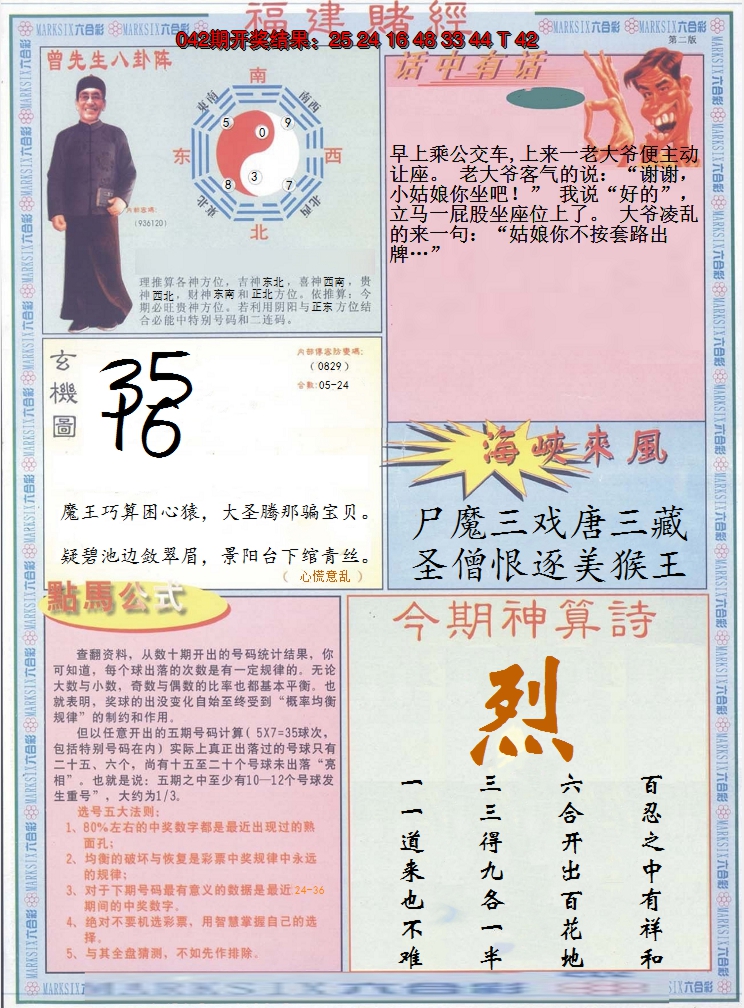 福建賭經
042期开奖结果：25 24 16 48 33 44 T 42
第二版
MARKSIX六合彩
曾先生八卦阵
南
东南
西南
5
9
0
东
西
3
8
7
东北
西北
北
内部密碼:
(936120)
理推算各神方位，吉神东北，喜神西南，贵
神西北，财神东南和正北方位。依推算：今
期必旺贵神方位。若利用阴阳与正东方位结
合必能中特别号码和二连码。
话中有话
早上乘公交车,上来一老大爷便主动
让座。 老大爷客气的说：“谢谢，
小姑娘你坐吧！” 我说“好的”，
立马一屁股坐座位上了。 大爷凌乱
的来一句：“姑娘你不按套路出
牌…”
玄機圖
35
16
(0829)
合數:05-24
魔王巧算困心猿，大圣腾那骗宝贝。
疑碧池边敛翠眉，景阳台下绾青丝。
（ 心慌意乱 ）
海峽來風
尸魔三戏唐三藏
圣僧恨逐美猴王
點馬公式
查翻资料，从数十期开出的号码统计结果，你
可知道，每个球出落的次数是有一定规律的。无论
大数与小数，奇数与偶数的比率也都基本平衡。也
就表明，奖球的出没变化自始至终受到“概率均衡
规律”的制约和作用。
但以任意开出的五期号码计算( 5X7=35球次，
包括特别号码在内) 实际上真正出落过的号球只有
二十五、六个，尚有十五至二十个号球未出落“亮
相”。也就是说：五期之中至少有10—12个号球发
生重号”，大约为1/3。
选号五大法则：
1、80%左右的中奖数字都是最近出现过的熟
面孔；
2、均衡的破坏与恢复是彩票中奖规律中永远
的规律；
3、对于下期号码最有意义的数据是最近24-36
期间的中奖数字。
4、绝对不要机选彩票，用智慧掌握自己的选
择。
5、与其全盘猜测，不如先作排除。
今期神算詩
烈
百忍之中有祥和
六合开出百花地
三三得九各一半
一一道来也不难